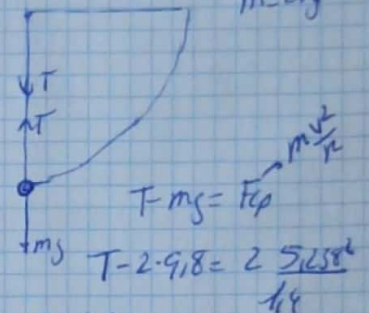 T
T
mg
T - mg = Fcp
m v²/r
T - 2·9,8 = 2 5,238²/1,4